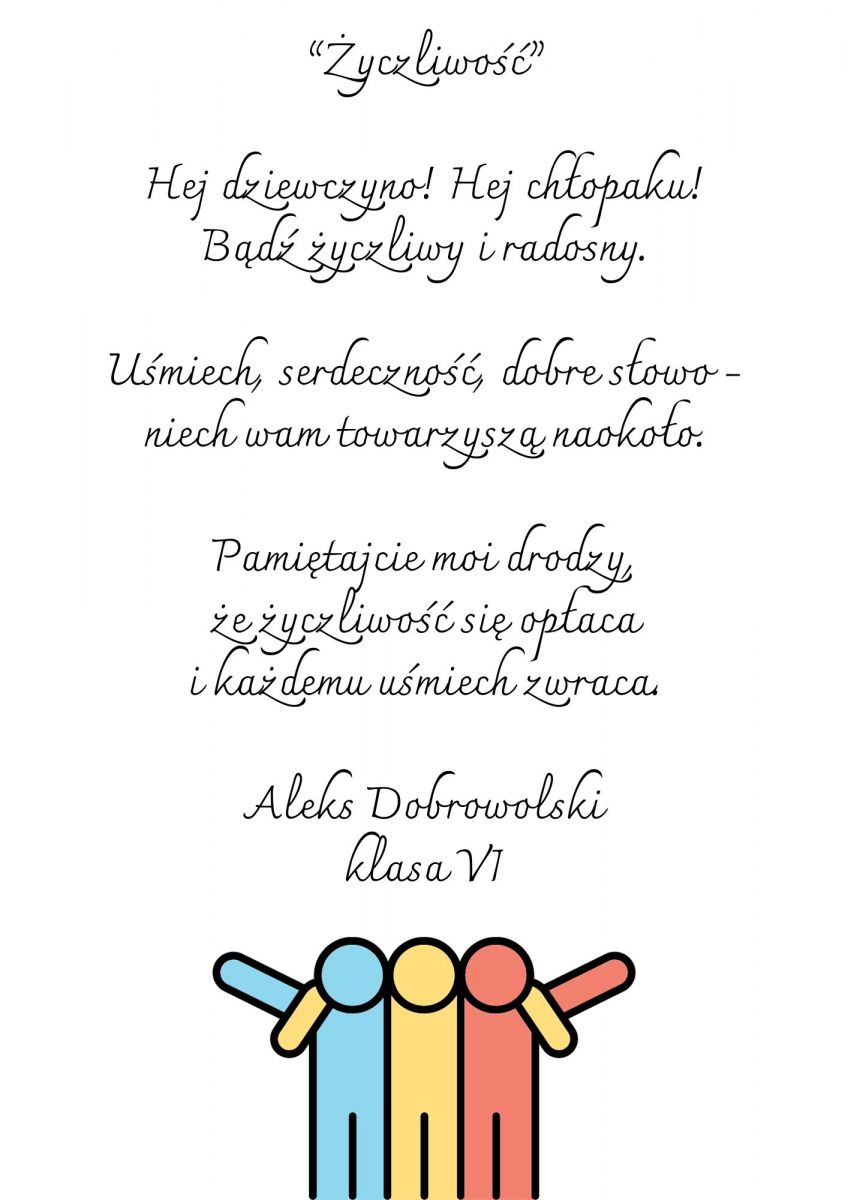 “Życzliwość”
Hej dziewczyno! Hej chłopaku!
Bądź życzliwy i radosny.
Uśmiech, serdeczność, dobre słowo -
niech wam towarzyszą naokoło.
Pamiętajcie moi drodzy,
że życzliwość się opłaca
i każdemu uśmiech zwraca.
Aleks Dobrowolski
klasa VI